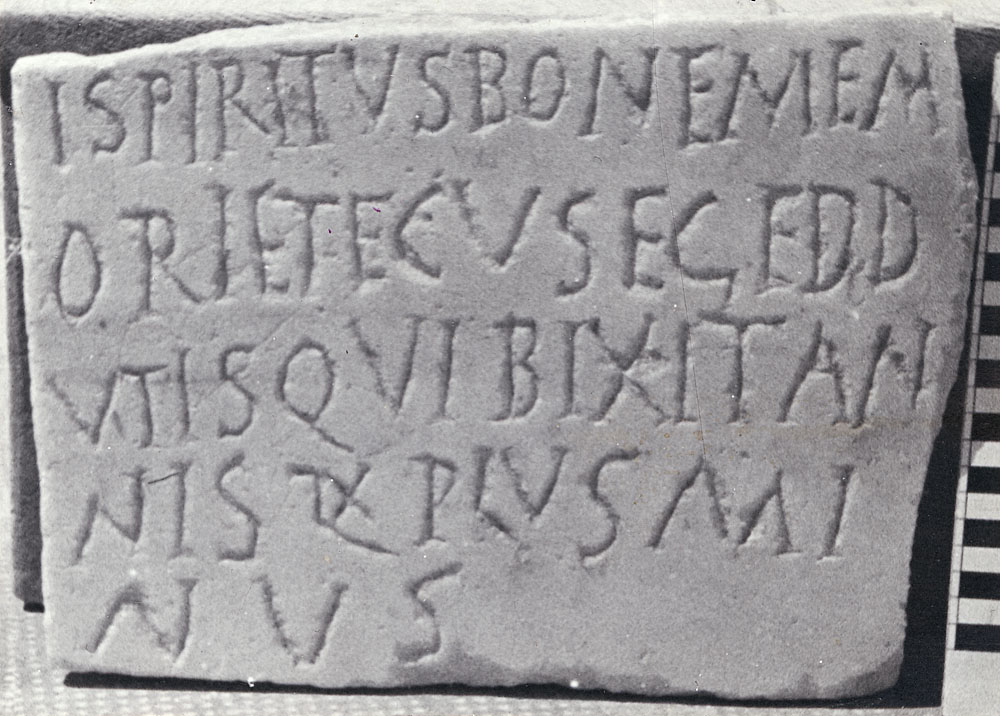 ISPIRITVSBONEMEM
ORIETECVSEGEDD
VTISQVIBIXITAN
NIS PLVSMI
NVS